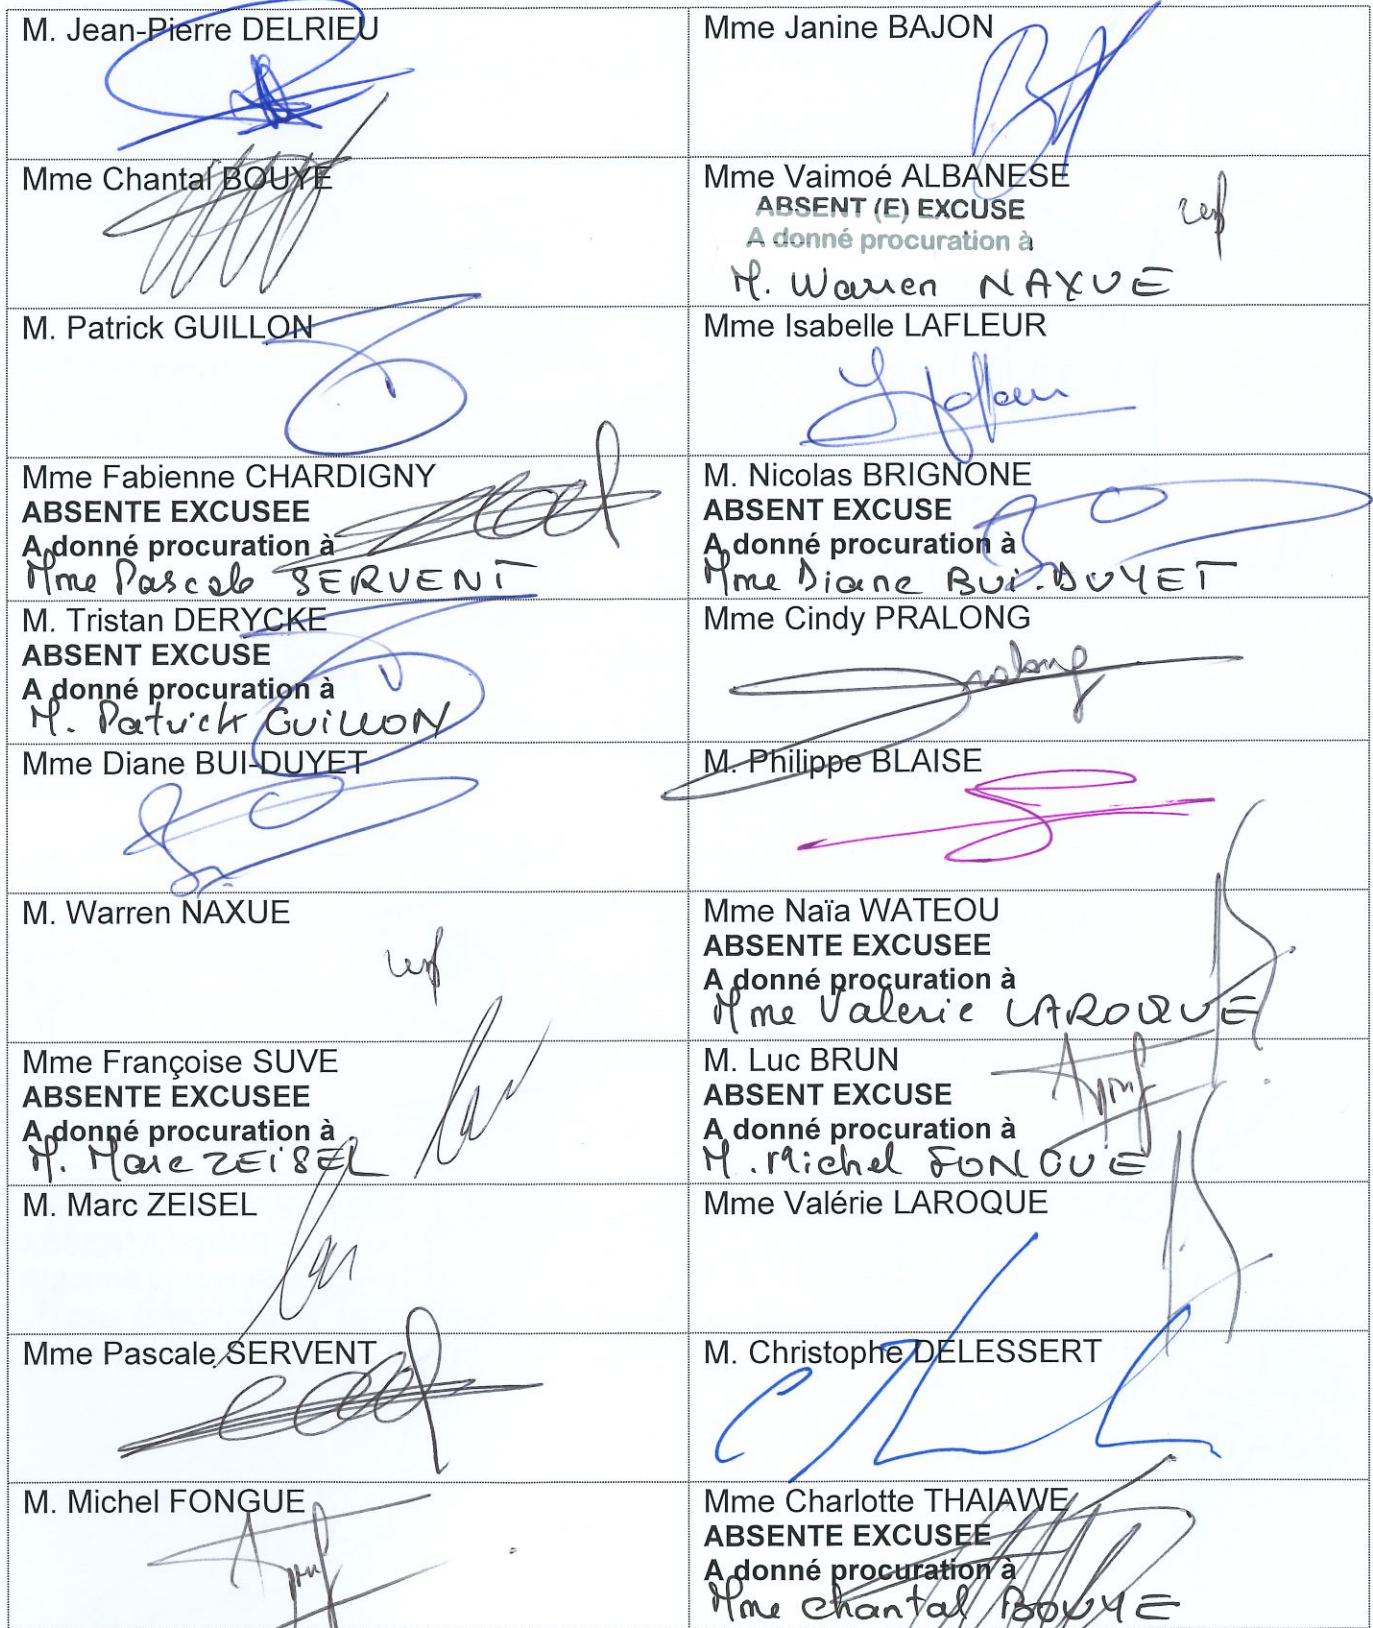 M. Jean-Pierre DELRIEU
Mme Janine BAJON
Mme Chantal BOUYE
Mme Vaimoé ALBANESE
ABSENT (E) EXCUSE
A donné procuration à
M. Warren NAXUE
M. Patrick GUILLON
Mme Isabelle LAFLEUR
Mme Fabienne CHARDIGNY
ABSENTE EXCUSEE
A donné procuration à
Mme Pascale SERVENT
M. Nicolas BRIGNONE
ABSENT EXCUSE
A donné procuration à
Mme Diane BUI-DUYET
M. Tristan DERYCKE
ABSENT EXCUSE
A donné procuration à
M. Patrick GUILLON
Mme Cindy PRALONG
Mme Diane BUI-DUYET
M. Philippe BLAISE
M. Warren NAXUE
Mme Naïa WATEOU
ABSENTE EXCUSEE
A donné procuration à
Mme Valerie LAROQUE
Mme Françoise SUVE
ABSENTE EXCUSEE
A donné procuration à
M. Marc ZEISEL
M. Luc BRUN
ABSENT EXCUSE
A donné procuration à
M. Michel FONGUE
M. Marc ZEISEL
Mme Valérie LAROQUE
Mme Pascale SERVENT
M. Christophe DELESSERT
M. Michel FONGUE
Mme Charlotte THAIAWE
ABSENTE EXCUSEE
A donné procuration à
Mme Chantal BOUYE